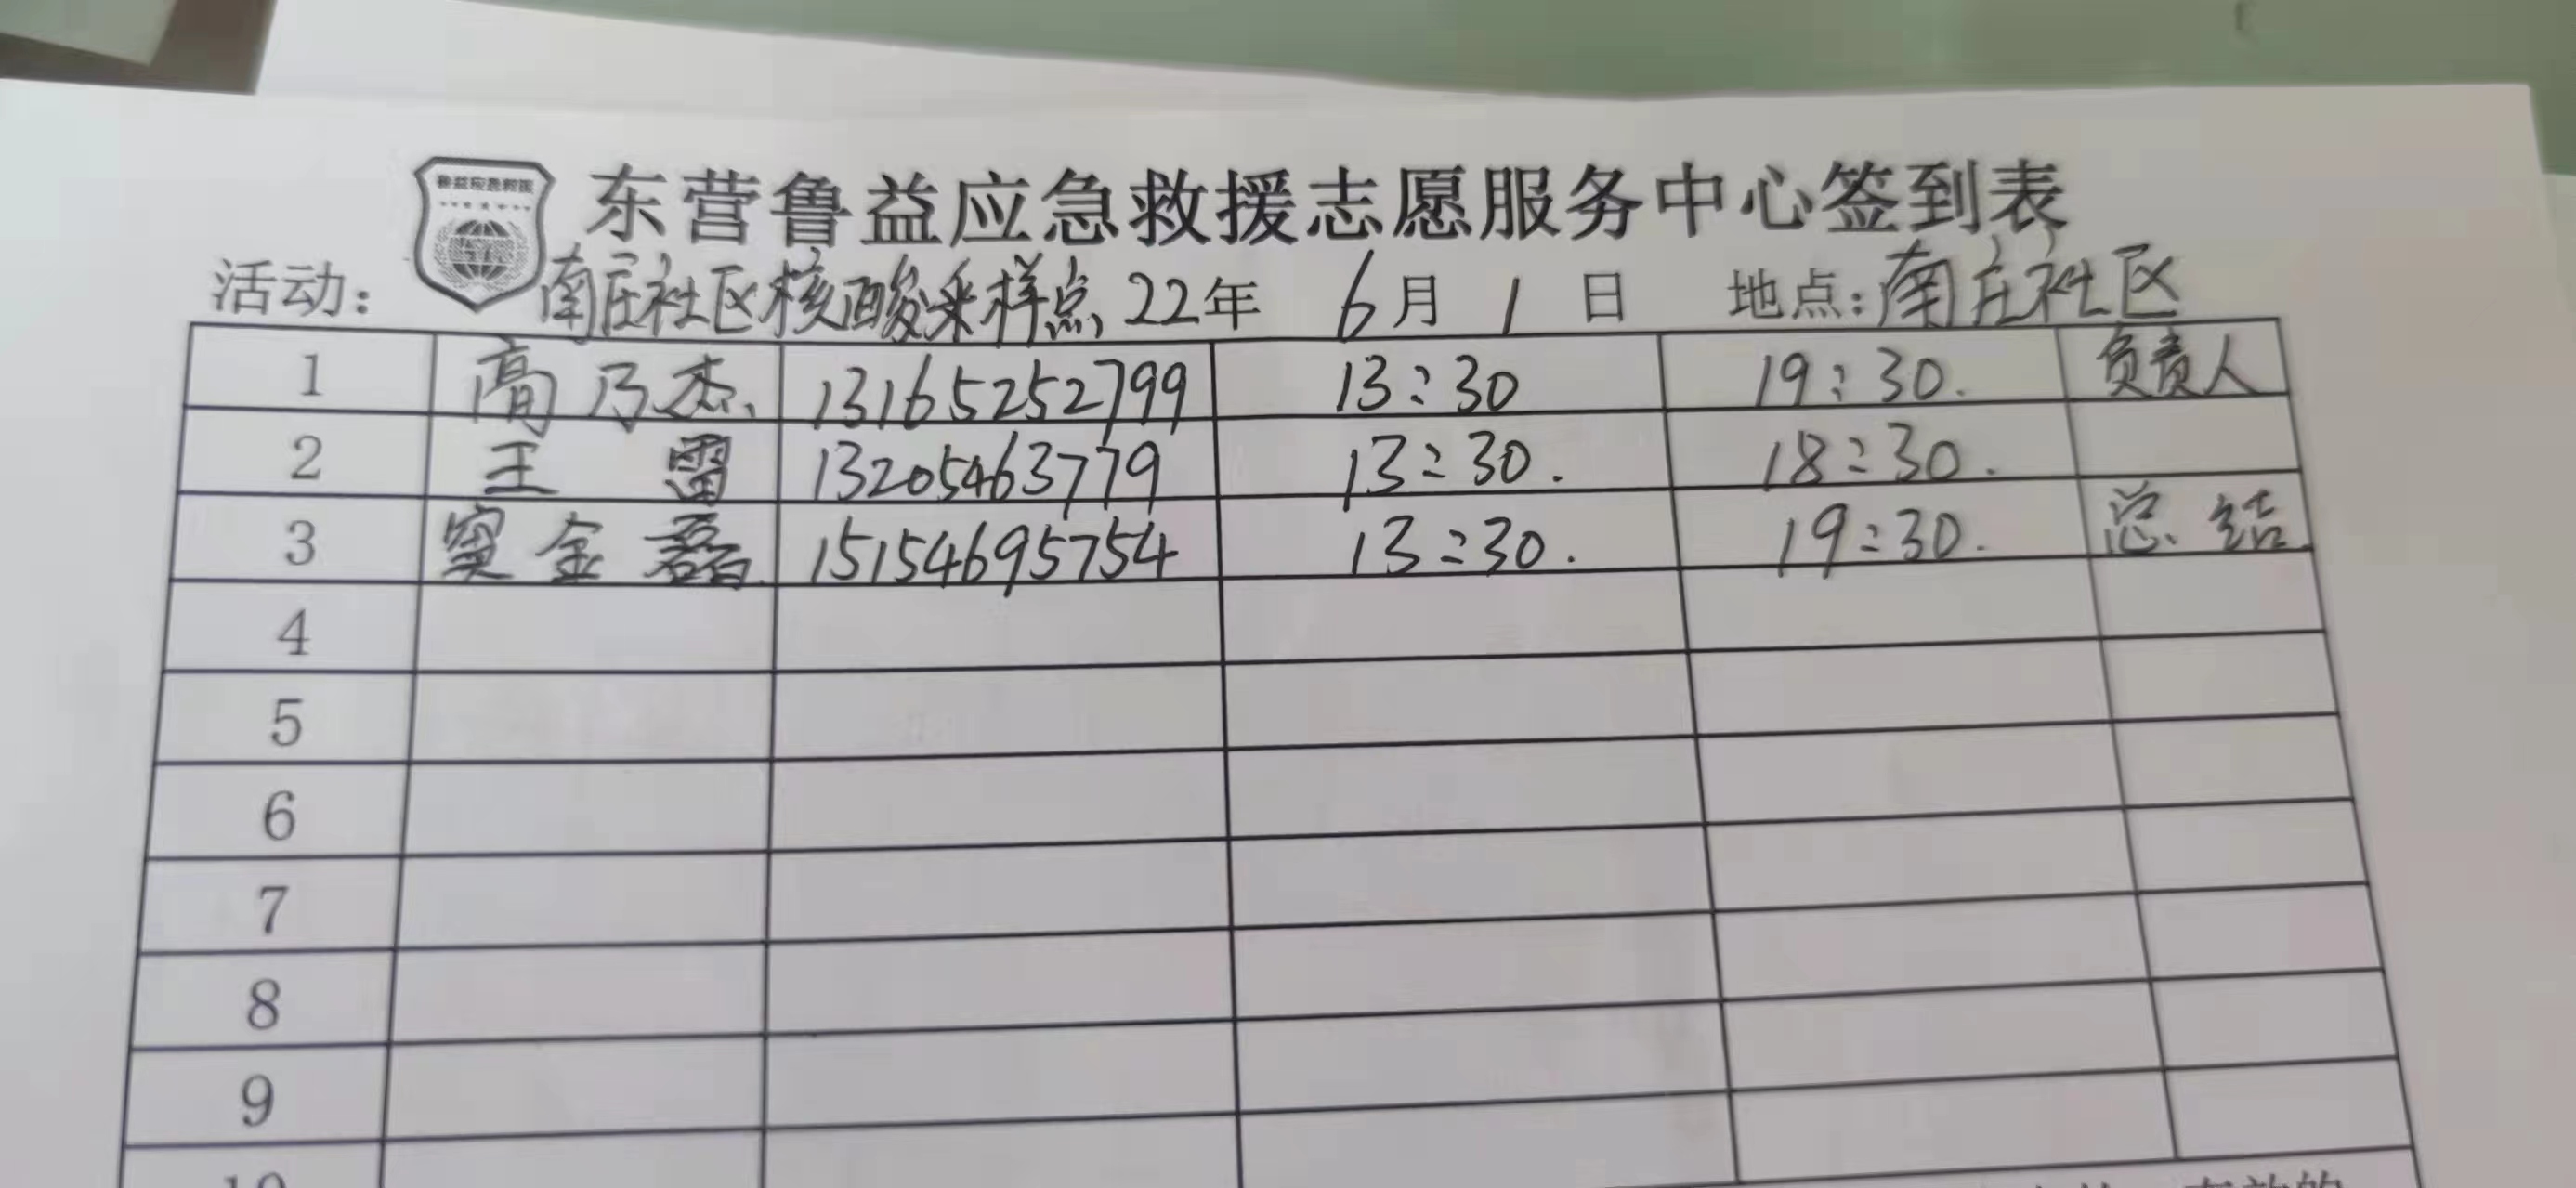 鲁益应急救援
东营鲁益应急救援志愿服务中心签到表
活动：南庄社区核酸采样点 22年 6月 1日 地点：南庄社区
1 高乃杰 13165252799 13：30 19：30. 负责人
2 王雷 13205463779 13：30. 18：30.
3 窦金磊 15154695754 13：30. 19：30. 总结
4
5
6
7
8
9
10